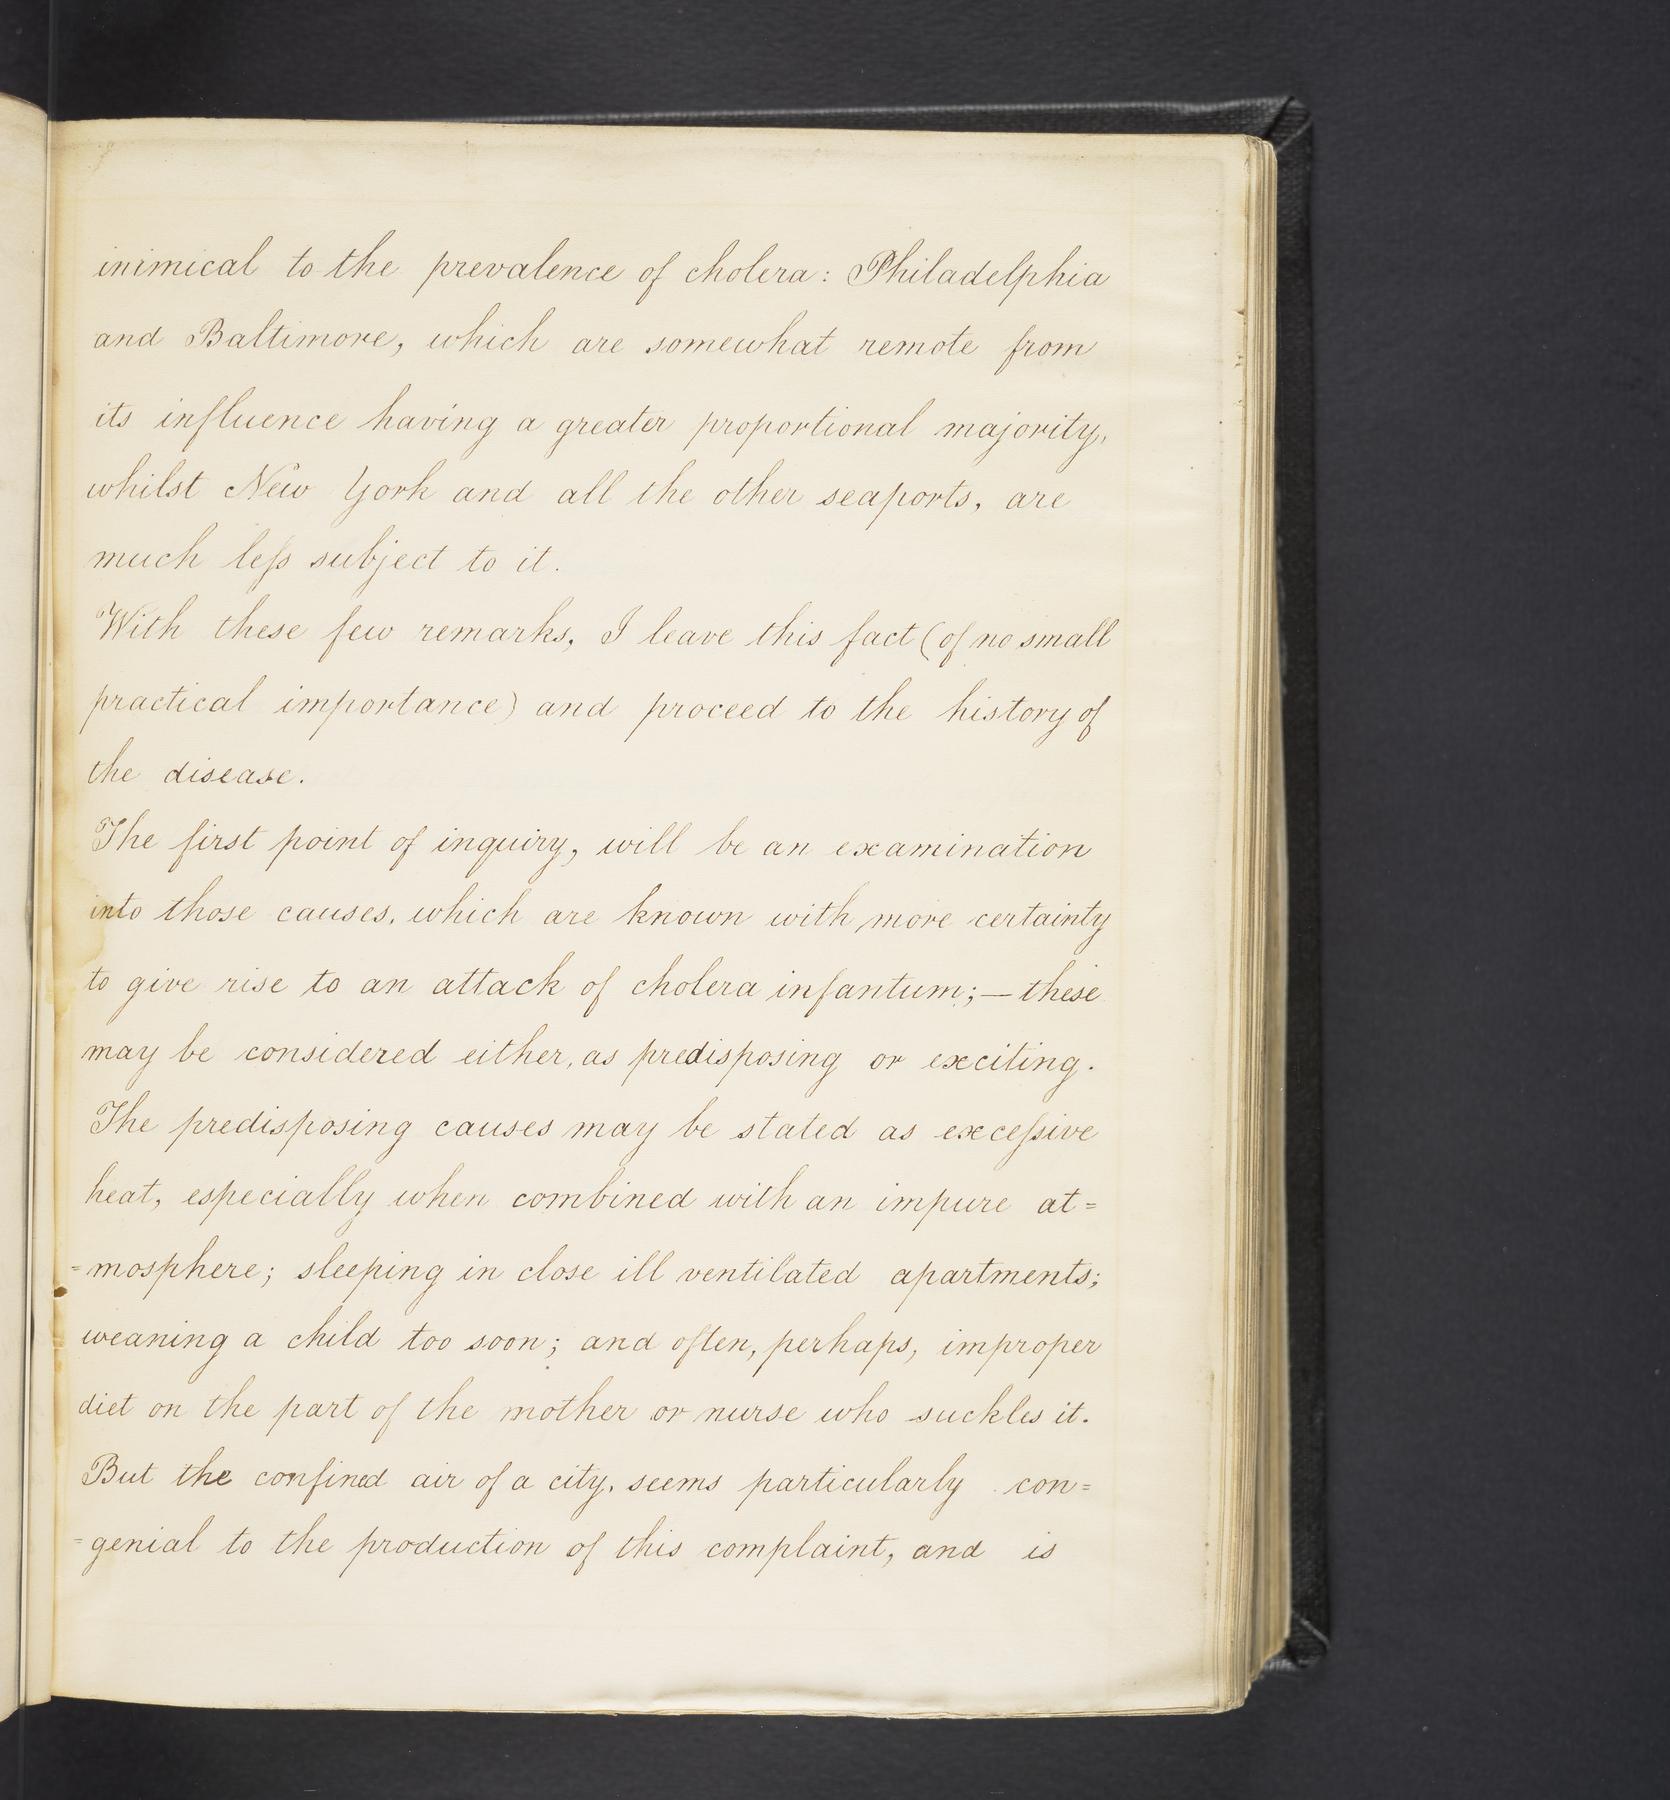 inimical to the prevalence of cholera: Philadelphia
and Baltimore, which are somewhat remote from
its influence having a greater proportional majority,
whilst New York and all the other seaports, are
much leſs subject to it.
With these few remarks, I leave this fact (of no small
practical importance) and proceed to the history of
the disease.
The first point of inquiry, will be an examination
into those causes, which are known with more certainty
to give rise to an attack of cholera infantum;—these
may be considered either, as predisposing or exciting.
The predisposing causes may be stated as exceſsive
heat, especially when combined with an impure at=
=mosphere; sleeping in close ill ventilated apartments;
weaning a child too soon; and often, perhaps, improper
diet on the part of the mother or nurse who suckles it.
But the confined air of a city, seems particularly con=
=genial to the production of this complaint, and is